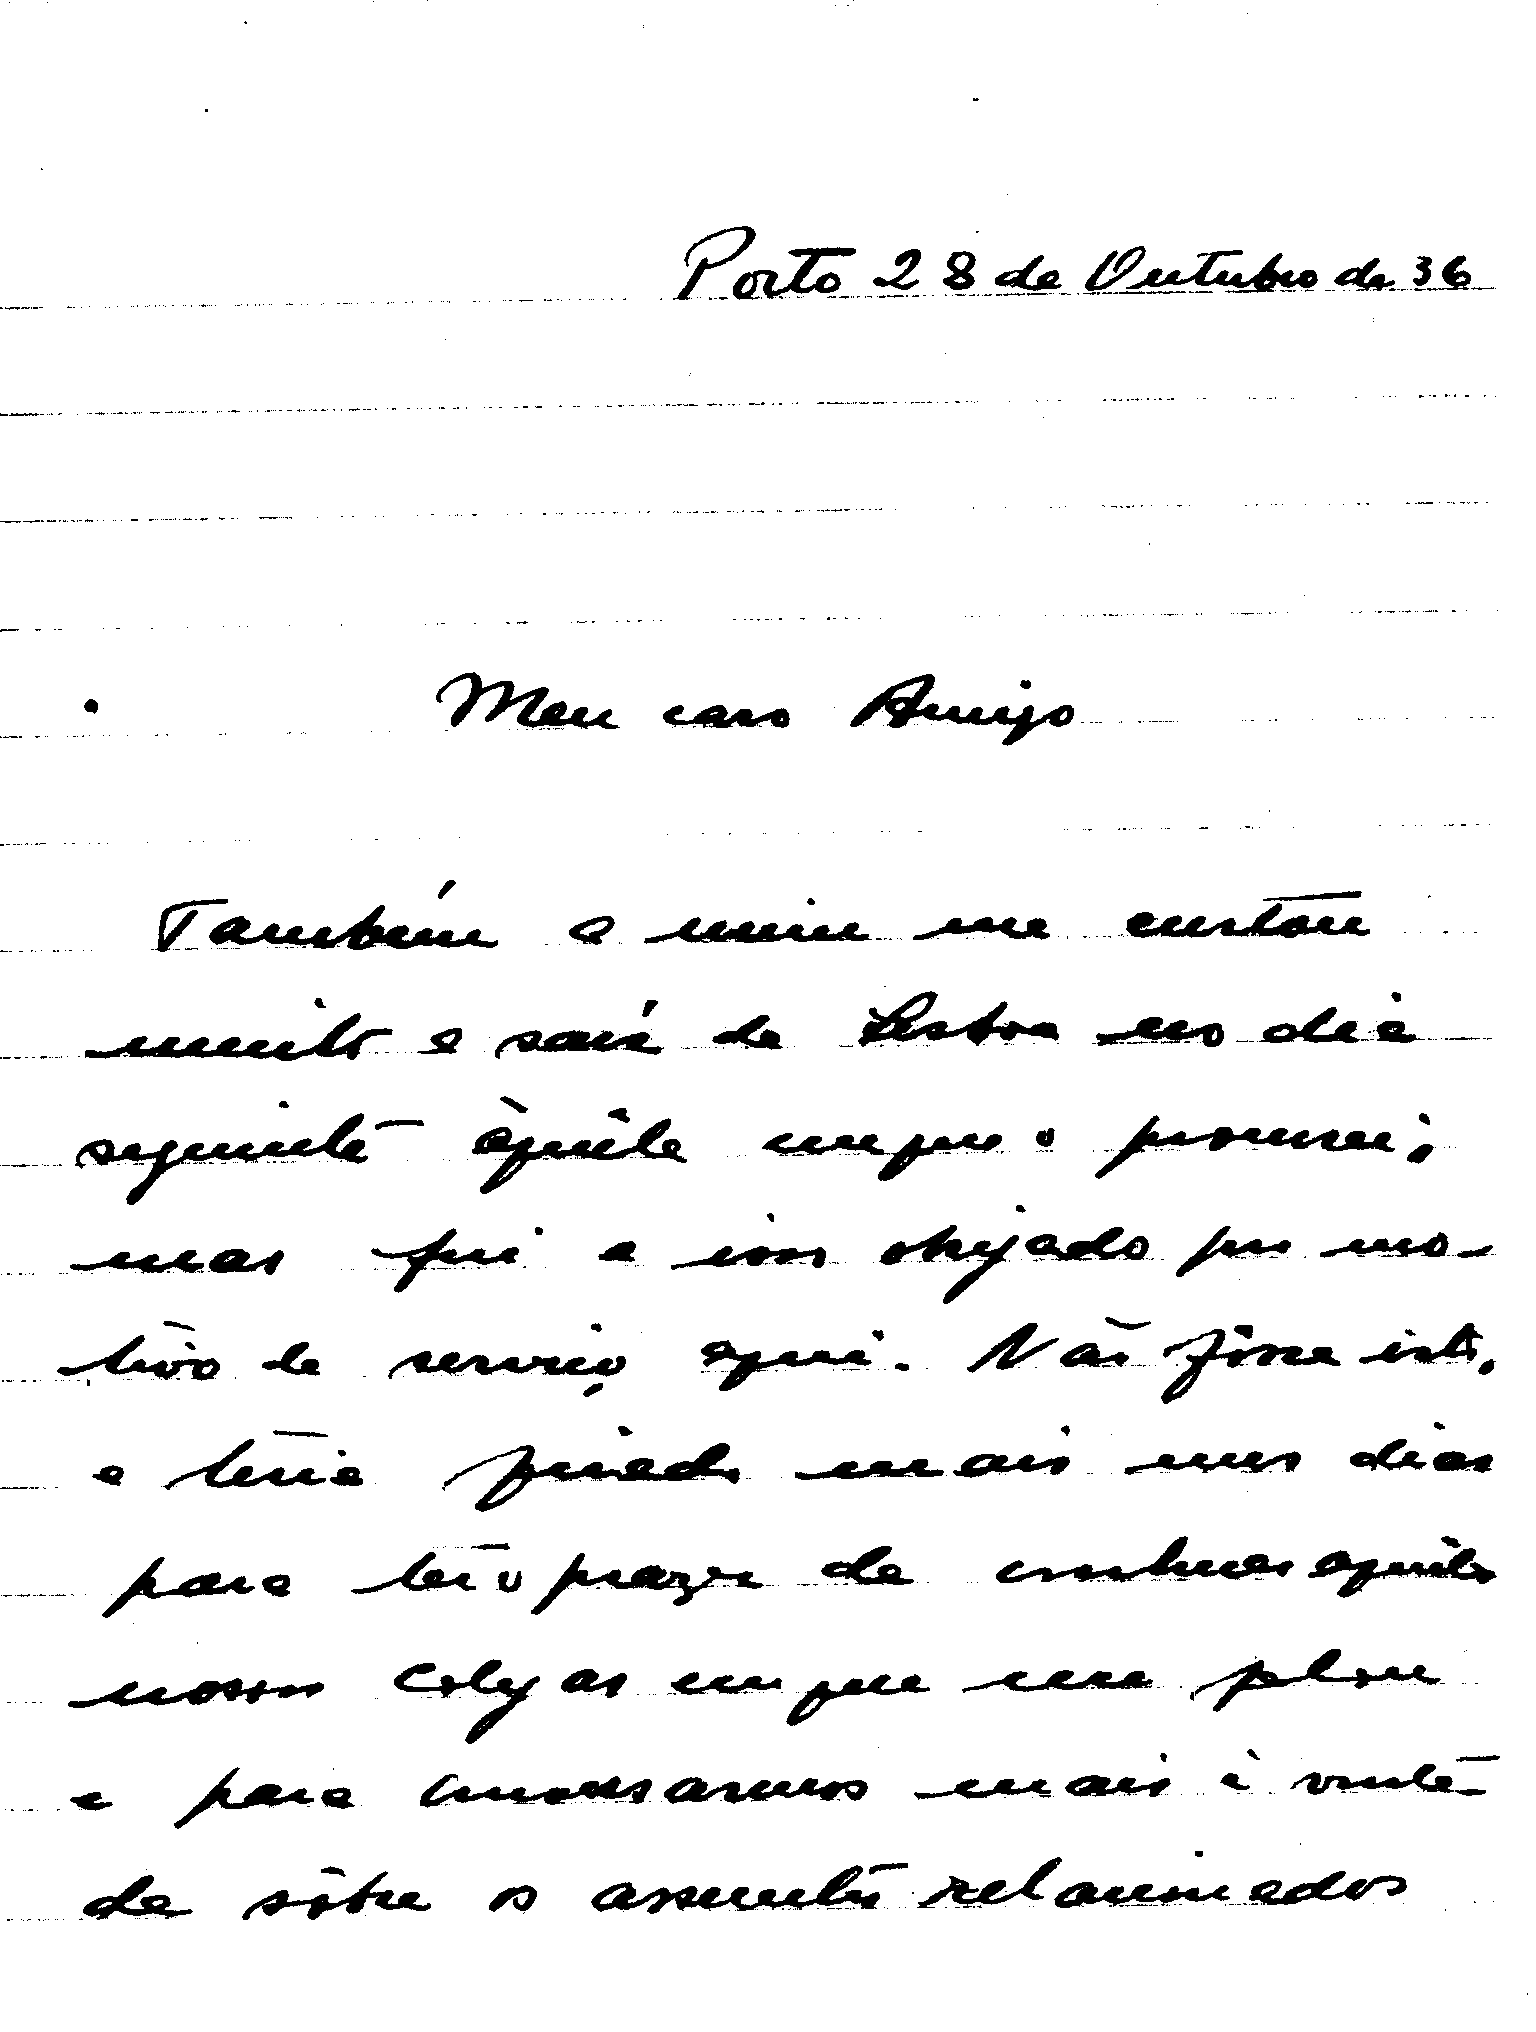 Porto 28 de Outubro de 36
Meu caro Amigo
Também a mim me custou
muito o sair de Lisboa no dia
seguinte àquêle em que o procurei;
mas fui a isso obrigado por mo-
tivo de serviço aqui. Não fôsse isto,
e teria ficado mais uns dias
para ter o prazer de conhecer aqueles
nossos colegas em que me falou
e para conversarmos mais à vonta-
de sôbre os assuntos relacionados